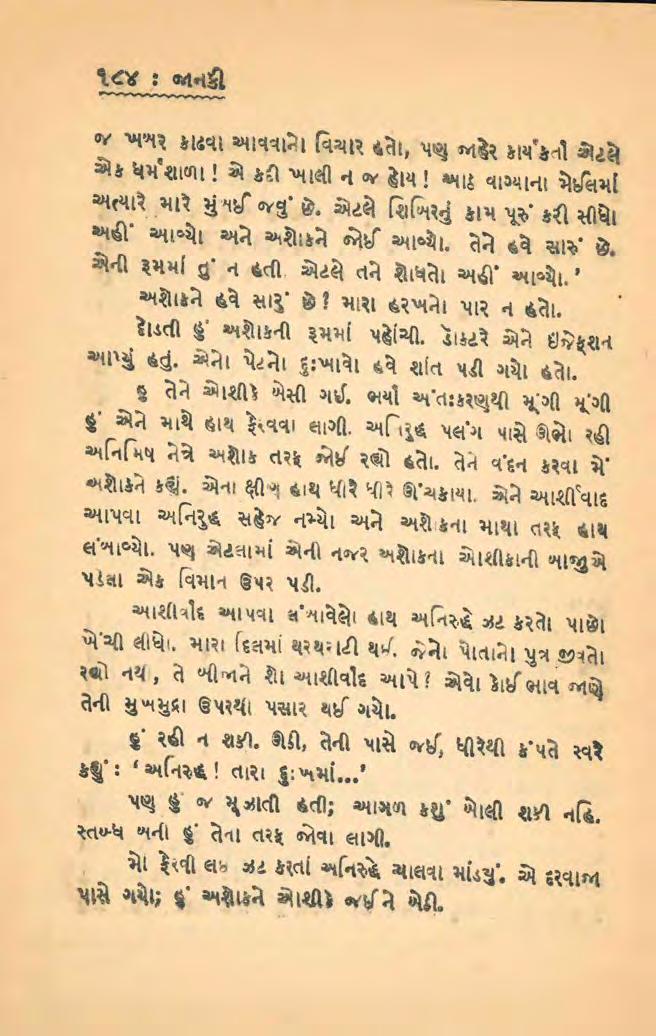 ૧૮૪ : જાનકી
જ ખબર કાઢવા આવવાનો વિચાર હતો, પણ જાહેર કાર્યકર્તા એટલે
એક ધર્મશાળા ! એ કદી ખાલી ન જ હોય ! આઠ વાગ્યાના મેઈલમાં
અત્યારે મારે મુંબઈ જવું છે. એટલે શિબિરનું કામ પૂરું કરી સીધો
અહીં આવ્યો અને અશોકને જોઈ આવ્યો. તેને હવે સારું છે.
એની રૂમમાં તું ન હતી એટલે તને શોધતો અહીં આવ્યો.'
અશોકને હવે સારું છે ? મારા હરખનો પાર ન હતો.
દોડતી હું અશોકની રૂમમાં પહોંચી. ડૉક્ટરે એને ઇંજેક્શન
આપ્યું હતું. એનો પેટનો દુઃખાવો હવે શાંત પડી ગયો હતો.
હું તેને ઓશીકે બેસી ગઈ. ભર્યા અંતઃકરણથી મૂંગી મૂંગી
હું એને માથે હાથ ફેરવવા લાગી. અનિરુદ્ધ પલંગ પાસે ઊભો રહી
અનિમિષ નેત્રે અશોક તરફ જોઈ રહ્યો હતો. તેને વંદન કરવા મેં
અશોકને કહ્યું. એના ક્ષીણ હાથ ધીરે ધીરે ઊંચકાયા. એને આશીર્વાદ
આપવા અનિરુદ્ધ સહેજ નમ્યો અને અશોકના માથા તરફ હાથ
લંબાવ્યો. પણ એટલામાં એની નજર અશોકના ઓશીકાની બાજુએ
પડેલા એક વિમાન ઉપર પડી.
આશીર્વાદ આપવા લંબાવેલો હાથ અનિરુદ્ધે ઝટ કરતો પાછો
ખેંચી લીધો. મારા દિલમાં થરથરાટી થઈ. જેનો પોતાનો પુત્ર જીવતો
રહ્યો નથી, તે બીજાને શો આશીર્વાદ આપે ? એવો કોઈ ભાવ જાણે
તેની મુખમુદ્રા ઉપરથી પસાર થઈ ગયો.
હું રહી ન શકી. ઊઠી, તેની પાસે જઈ, ધીરેથી કંપતે સ્વરે
કહ્યું : ‘અનિરુદ્ધ ! તારા દુઃખમાં...’
પણ હું જ મૂઝાતી હતી; આગળ કશું બોલી શકી નહિ.
સ્તબ્ધ બની હું તેના તરફ જોવા લાગી.
મોં ફેરવી લઇ ઝટ કરતાં અનિરુદ્ધે ચાલવા માંડયું. એ દરવાજા
પાસે ગયો; હું અશોકને ઓશીકે જઈને બેઠી.